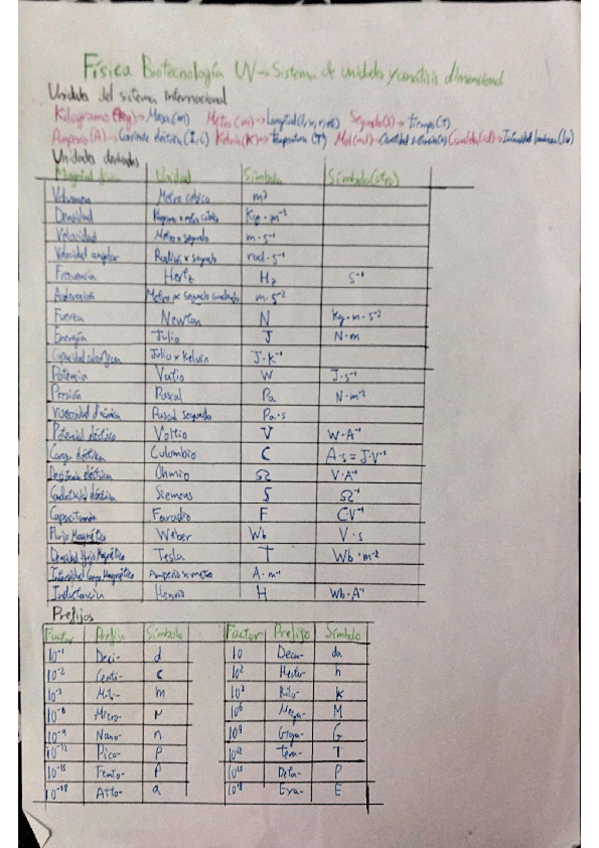 Física Biotecnología UV → Sistema de unidades y análisis dimensional
Unidades del sistema Internacional
Kilogramo (kg) → Masa (m) Metro (m) → Longitud (l, x, r, etc) Segundo (s) → tiempo (t)
Amperio (A) → Corriente eléctrica (I, i) Kelvin (K) → Temperatura (T) Mol (mol) → Cantidad sustancia (n) Candela (cd) → Intensidad luminosa (Iv)
Unidades derivadas
Magnitud física Unidad Símbolo Símbolo (otro)
Volumen Metro cúbico m³
Densidad Kilogramo x metro cúbico Kg · m⁻³
Velocidad Metro x segundo m · s⁻¹
Velocidad angular Radián x segundo rad · s⁻¹
Frecuencia Hertz Hz s⁻¹
Aceleración Metro x segundo cuadrado m · s⁻²
Fuerza Newton N Kg · m · s⁻²
Energía Julio J N · m
Capacidad calorífica Julio x Kelvin J · K⁻¹
Potencia Vatio W J · s⁻¹
Presión Pascal Pa N · m⁻²
Viscosidad dinámica Pascal segundo Pa · s
Potencial eléctrico Voltio V W · A⁻¹
Carga eléctrica Culombio C A · s = J · V⁻¹
Resistencia eléctrica Ohmio Ω V · A⁻¹
Conductividad eléctrica Siemens S Ω⁻¹
Capacitancia Faradio F C V⁻¹
Flujo Magnético Weber Wb V · s
Densidad flujo Magnético Tesla T Wb · m⁻²
Intensidad Campo Magnético Amperio x metro A · m⁻¹
Inductancia Henrio H Wb · A⁻¹
Prefijos
Factor Prefijo Símbolo Factor Prefijo Símbolo
10⁻¹ Deci- d 10 Deca- da
10⁻² Centi- c 10² Hecto- h
10⁻³ Mili- m 10³ Kilo- k
Micro- μ 10⁶ Mega- M
Nano- n 10⁹ Giga- G
10⁻¹² Pico- p 10¹² Tera- T
10⁻¹⁵ Femto- f 10¹⁵ P
10⁻¹⁸ Atto- a 10¹⁸ Exa- E